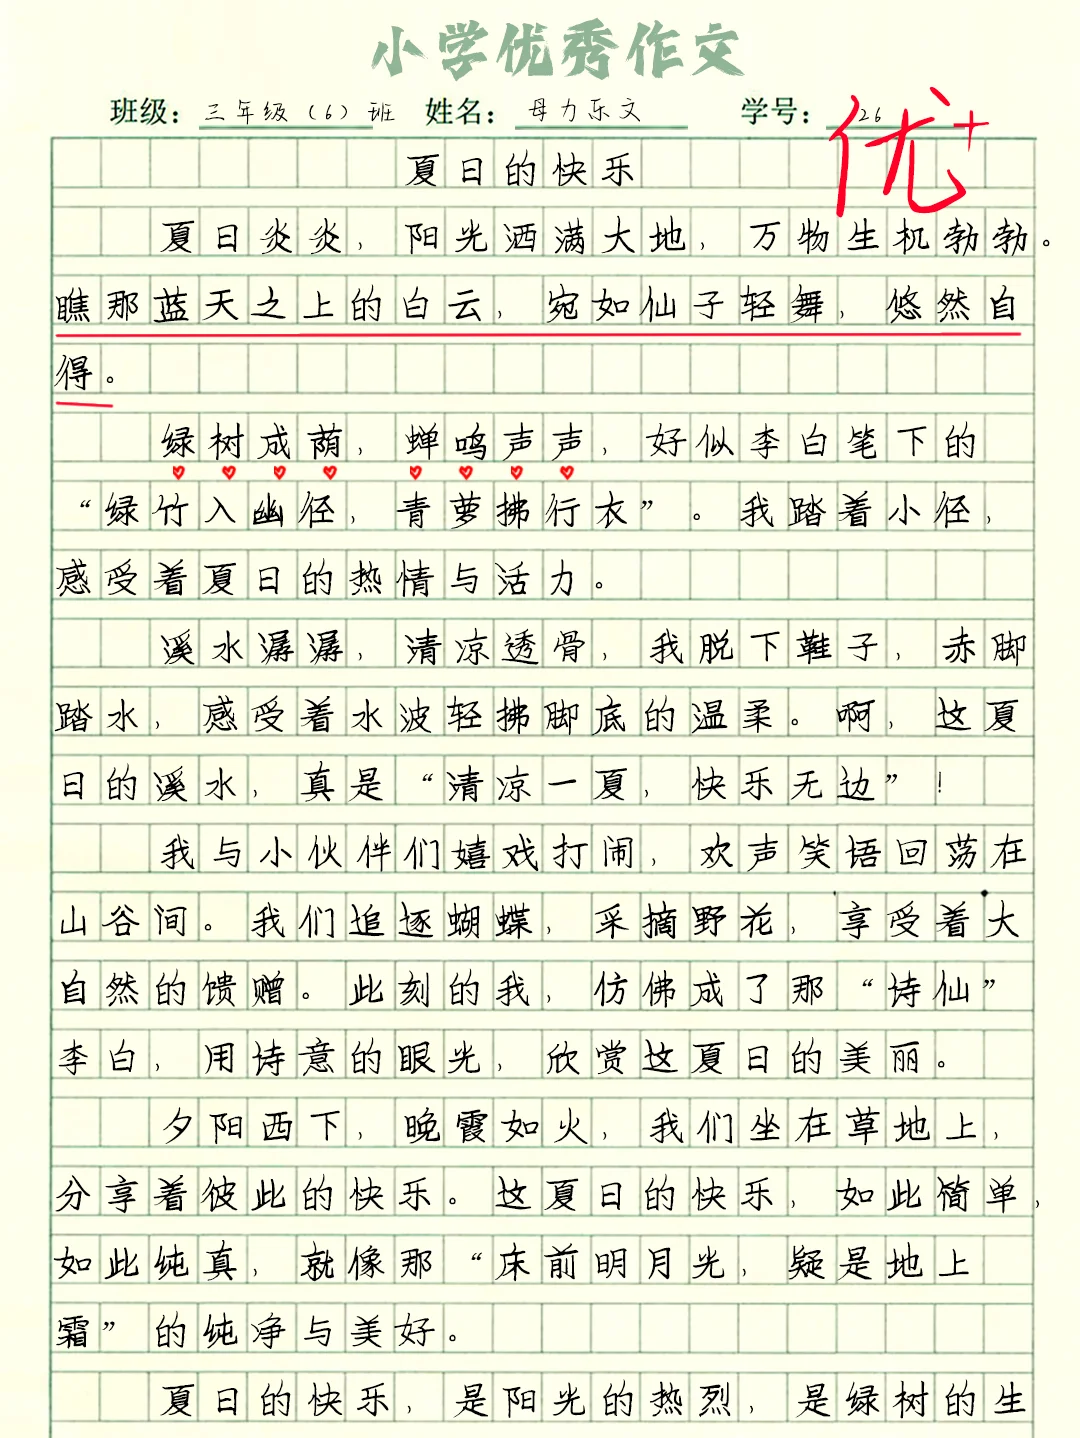 小学优秀作文
班级：三年级（6）班 姓名：母力乐文 学号：26
优+
夏日的快乐
夏日炎炎，阳光洒满大地，万物生机勃勃。
瞧那蓝天之上的白云，宛如仙子轻舞，悠然自
得。
绿树成荫，蝉鸣声声，好似李白笔下的
“绿竹入幽径，青萝拂行衣”。我踏着小径，
感受着夏日的热情与活力。
溪水潺潺，清凉透骨，我脱下鞋子，赤脚
踏水，感受着水波轻拂脚底的温柔。啊，这夏
日的溪水，真是“清凉一夏，快乐无边”！
我与小伙伴们嬉戏打闹，欢声笑语回荡在
山谷间。我们追逐蝴蝶，采摘野花，享受着大
自然的馈赠。此刻的我，仿佛成了那“诗仙”
李白，用诗意的眼光，欣赏这夏日的美丽。
夕阳西下，晚霞如火，我们坐在草地上，
分享着彼此的快乐。这夏日的快乐，如此简单，
如此纯真，就像那“床前明月光，疑是地上
霜”的纯净与美好。
夏日的快乐，是阳光的热烈，是绿树的生